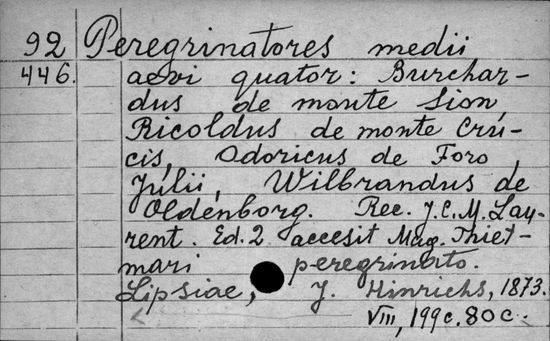 92 Peregrinatores medii
446. aevi quator: Burchar-
dus de monte Sion
Ricoldus de monte Crú-
cis, Odoricus de Foro
Júlii, Wilbrandus de
Oldenborg. Rec. J.C.M. Lau-
rent. Ed. 2 accesit Mag. Thiet-
mari peregrinato.
Lipsiae, J. Hinrichs, 1873.
VIII, 199c. 80c.